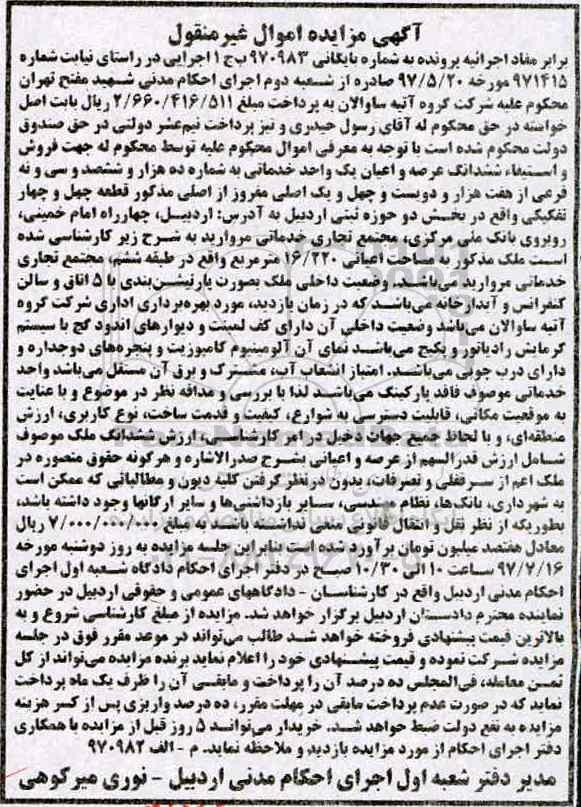 آگهی مزایده اموال غیرمنقول
برابر مفاد اجرائیه پرونده به شماره بایگانی ۹۷۰۹۸۳ ب ج ۱ اجرایی در راستای نیابت شماره
۹۷۱۴۱۵ مورخه ۹۷/۵/۲۰ صادره از شعبه دوم اجرای احکام مدنی شهید مفتح تهران
محکوم علیه شرکت گروه آتیه ساوالان به پرداخت مبلغ ۲/۶۶۰/۴۱۶/۵۱۱ ریال بابت اصل
خواسته در حق محکوم له آقای رسول حیدری و نیز پرداخت نیم‌عشر دولتی در حق صندوق
دولت محکوم شده است با توجه به معرفی اموال محکوم علیه توسط محکوم له جهت فروش
و استیفاء ششدانگ عرصه و اعیان یک واحد خدماتی به شماره ده هزار و ششصد و سی و نه
فرعی از هفت هزار و دویست و چهل و یک اصلی مفروز از اصلی مذکور قطعه چهل و چهار
تفکیکی واقع در بخش دو حوزه ثبتی اردبیل به آدرس: اردبیل، چهارراه امام خمینی،
روبروی بانک ملی مرکزی، مجتمع تجاری خدماتی مروارید به شرح زیر کارشناسی شده
است ملک مذکور به مساحت اعیانی ۱۶/۲۲۰ مترمربع واقع در طبقه ششم، مجتمع تجاری
خدماتی مروارید می‌باشد. وضعیت داخلی ملک بصورت پارتیشن‌بندی با ۵ اتاق و سالن
کنفرانس و آبدارخانه می‌باشد که در زمان بازدید، مورد بهره‌برداری اداری شرکت گروه
آتیه ساوالان می‌باشد وضعیت داخلی آن دارای کف لمینت و دیوارهای اندود گچ با سیستم
گرمایش رادیاتور و پکیج می‌باشد نمای آن آلومینیوم کامپوزیت و پنجره‌های دوجداره و
دارای درب چوبی می‌باشد. امتیاز انشعاب آب، مشترک و برق آن مستقل می‌باشد واحد
خدماتی موصوف فاقد پارکینگ می‌باشد لذا با بررسی و مداقه نظر در موضوع و با عنایت
به موقعیت مکانی، قابلیت دسترسی به شوارع، کیفیت و قدمت ساخت، نوع کاربری، ارزش
منطقه‌ای، و با لحاظ جمیع جهات دخیل در امر کارشناسی، ارزش ششدانگ ملک موصوف
شامل ارزش قدرالسهم از عرصه و اعیانی بشرح صدرالاشاره و هرگونه حقوق متصوره در
ملک اعم از سرقفلی و تصرفات، بدون درنظر گرفتن کلیه دیون و مطالباتی که ممکن است
به شهرداری، بانک‌ها، نظام مهندسی، سایر بازداشتی‌ها و سایر ارگانها وجود داشته باشد،
بطوریکه از نظر نقل و انتقال قانونی منعی نداشته باشند به مبلغ ۷/۰۰۰/۰۰۰/۰۰۰ ریال
معادل هفتصد میلیون تومان برآورد شده است بنابراین جلسه مزایده به روز دوشنبه مورخه
۹۷/۷/۱۶ ساعت ۱۰ الی ۱۰/۳۰ صبح در دفتر اجرای احکام دادگاه شعبه اول اجرای
احکام مدنی اردبیل واقع در کارشناسان - دادگاههای عمومی و حقوقی اردبیل در حضور
نماینده محترم دادستان اردبیل برگزار خواهد شد. مزایده از مبلغ کارشناسی شروع و به
بالاترین قیمت پیشنهادی فروخته خواهد شد طالب می‌تواند در موعد مقرر فوق در جلسه
مزایده شرکت نموده و قیمت پیشنهادی خود را اعلام نماید برنده مزایده می‌تواند از کل
ثمن معامله، فی‌المجلس ده درصد آن را پرداخت و مابقی آن را ظرف یک ماه پرداخت
نماید که در صورت عدم پرداخت مابقی در مهلت مقرر، ده درصد واریزی پس از کسر هزینه
مزایده به نفع دولت ضبط خواهد شد. خریدار می‌تواند ۵ روز قبل از مزایده با همکاری
دفتر اجرای احکام از مورد مزایده بازدید و ملاحظه نماید. م - الف ۹۷۰۹۸۲
مدیر دفتر شعبه اول اجرای احکام مدنی اردبیل - نوری میرکوهی